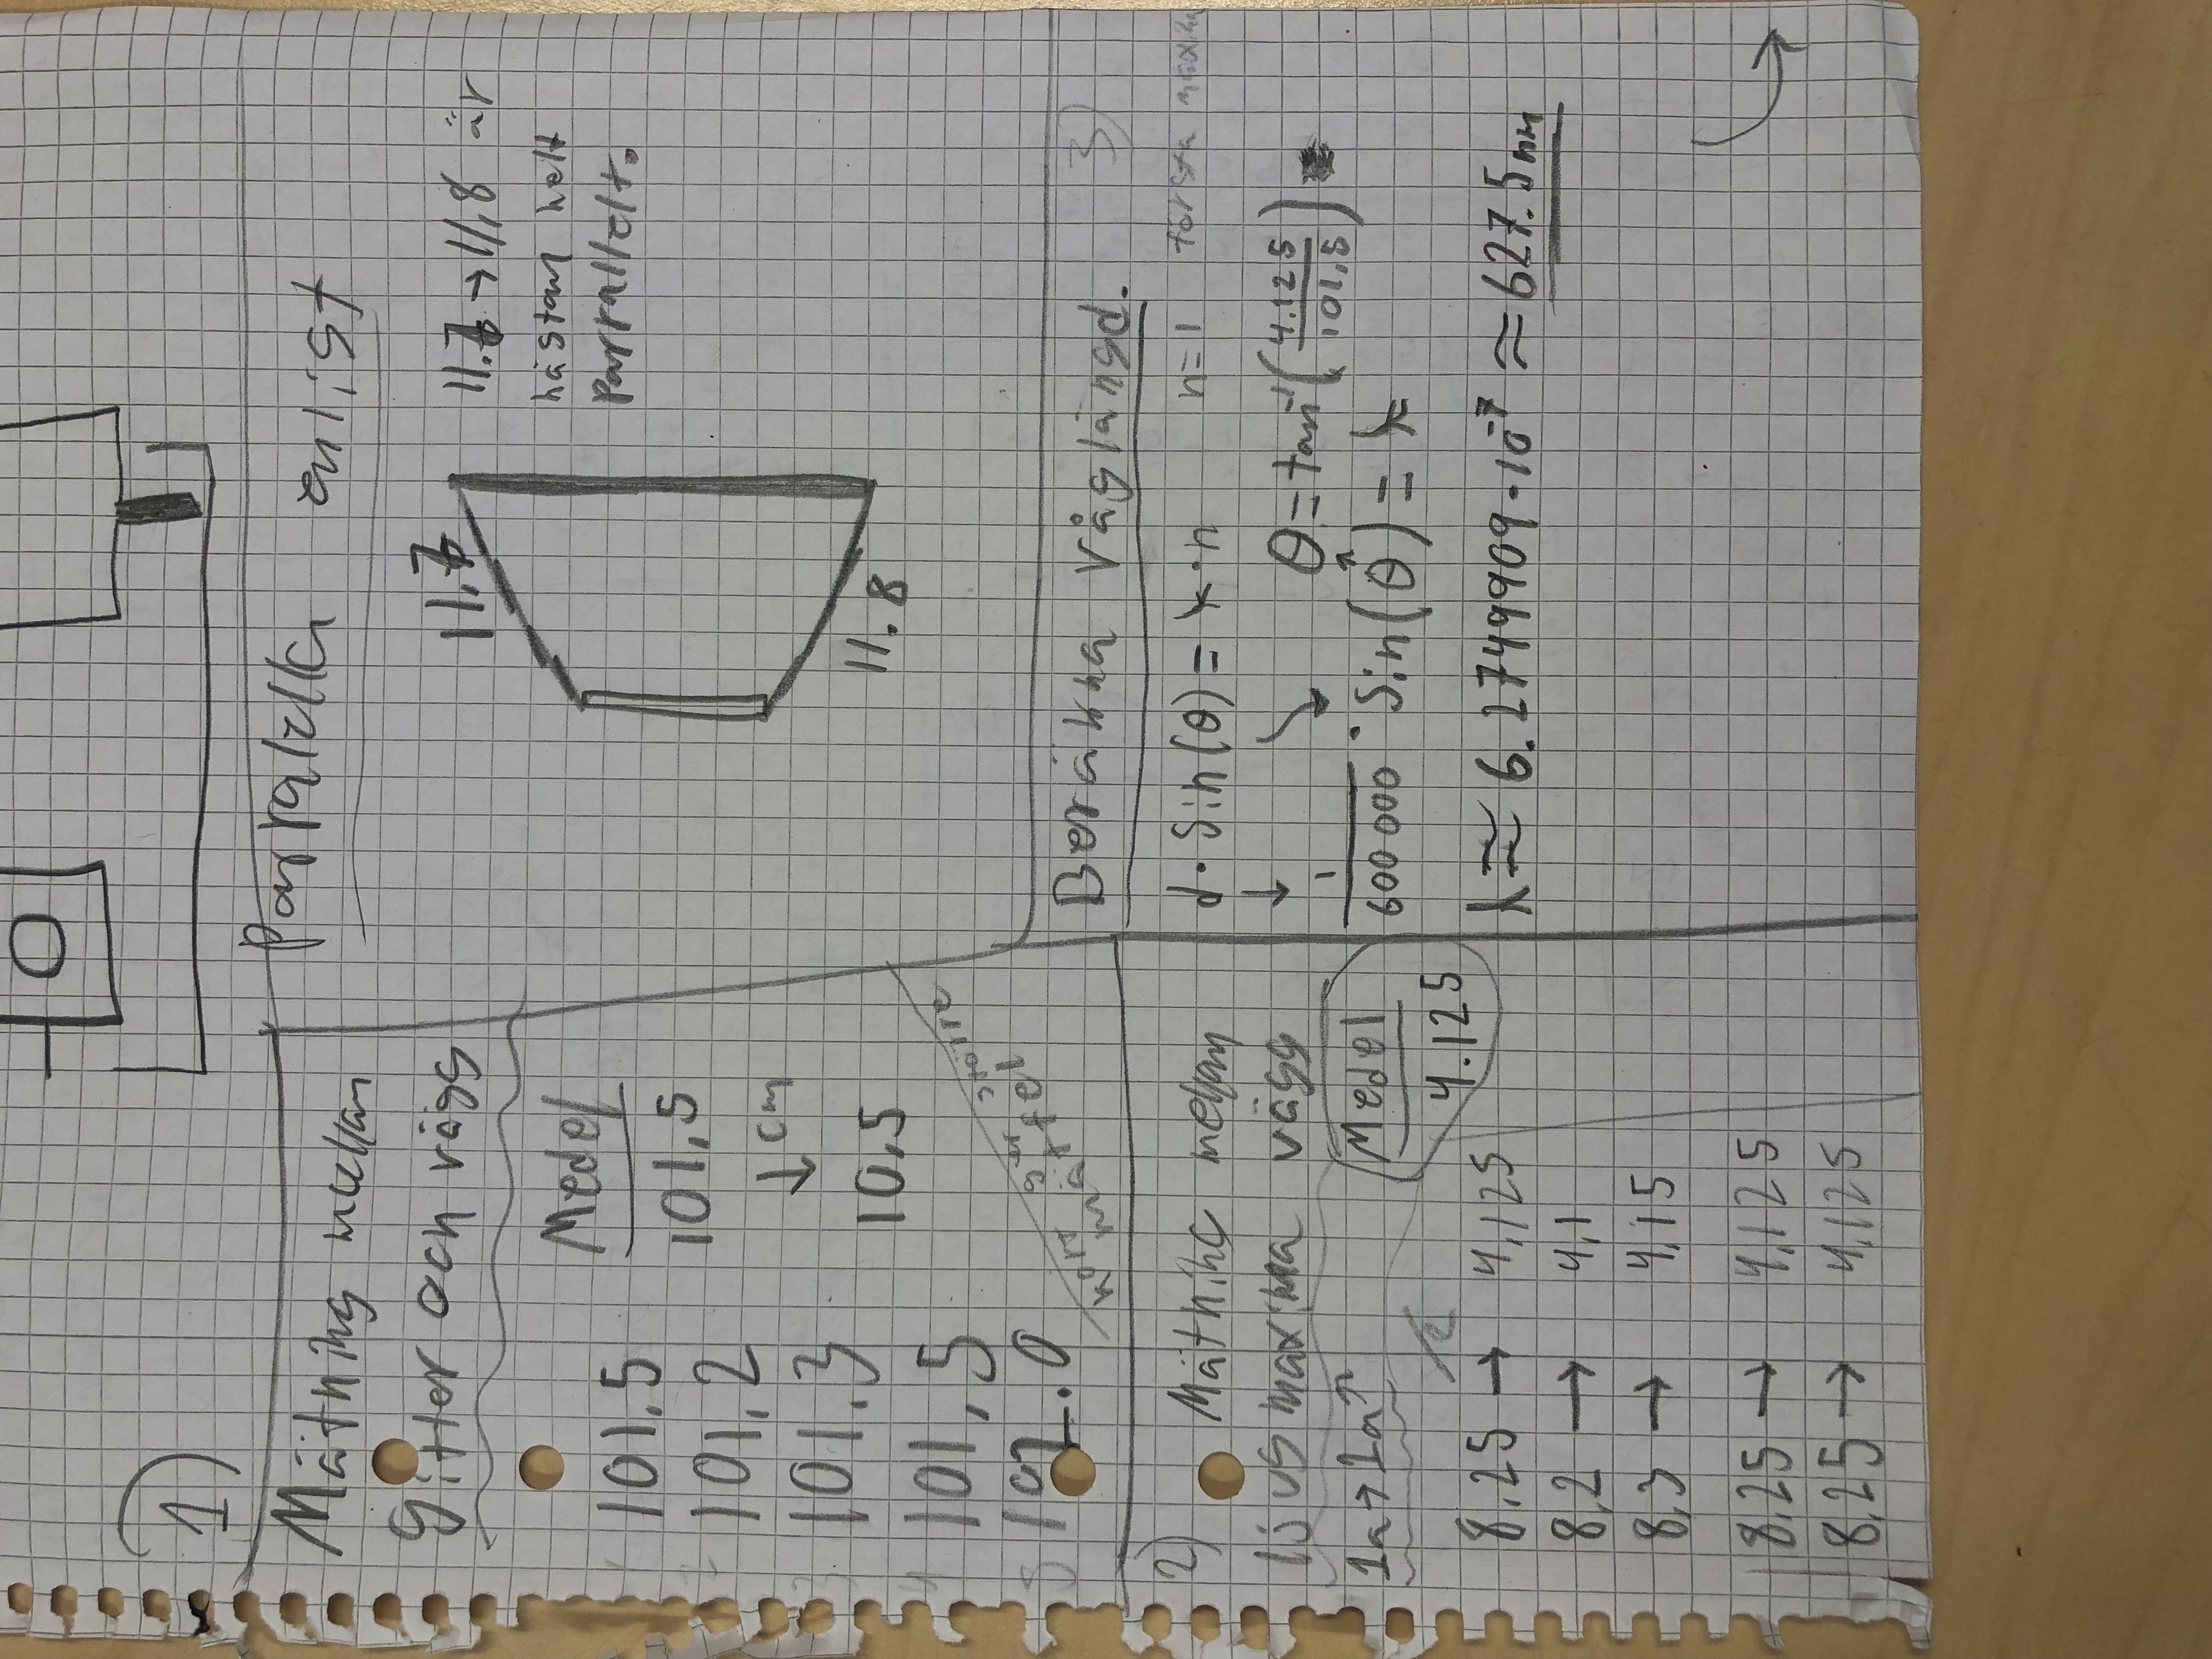 1)
Mätning mellan
gitter och vägg
101.5
101.2
101.3
101.5
102.0
Medel
101.5
↓ cm
10.5
kort ger större
mätfel
Parralella enligt
11.7
11.8
11.7 → 11,8 är
nästan helt
Parrallelt.
2)
Mätning mellan
ljusmaxima vägg
1a → 1a
/2
8,25 → 4,125
8,2 → 4,1
8,3 → 4,15
8,25 → 4,125
8,25 → 4,125
Medel
4.125
Beräkna våglängd. 3)
d · Sin(θ) = λ · n n=1 första maxima
θ = tan⁻¹(4.125/101,5)
1/600 000 · Sin(θ) = λ
λ ≈ 6.2749909 · 10⁻⁷ ≈ 627.5 nm